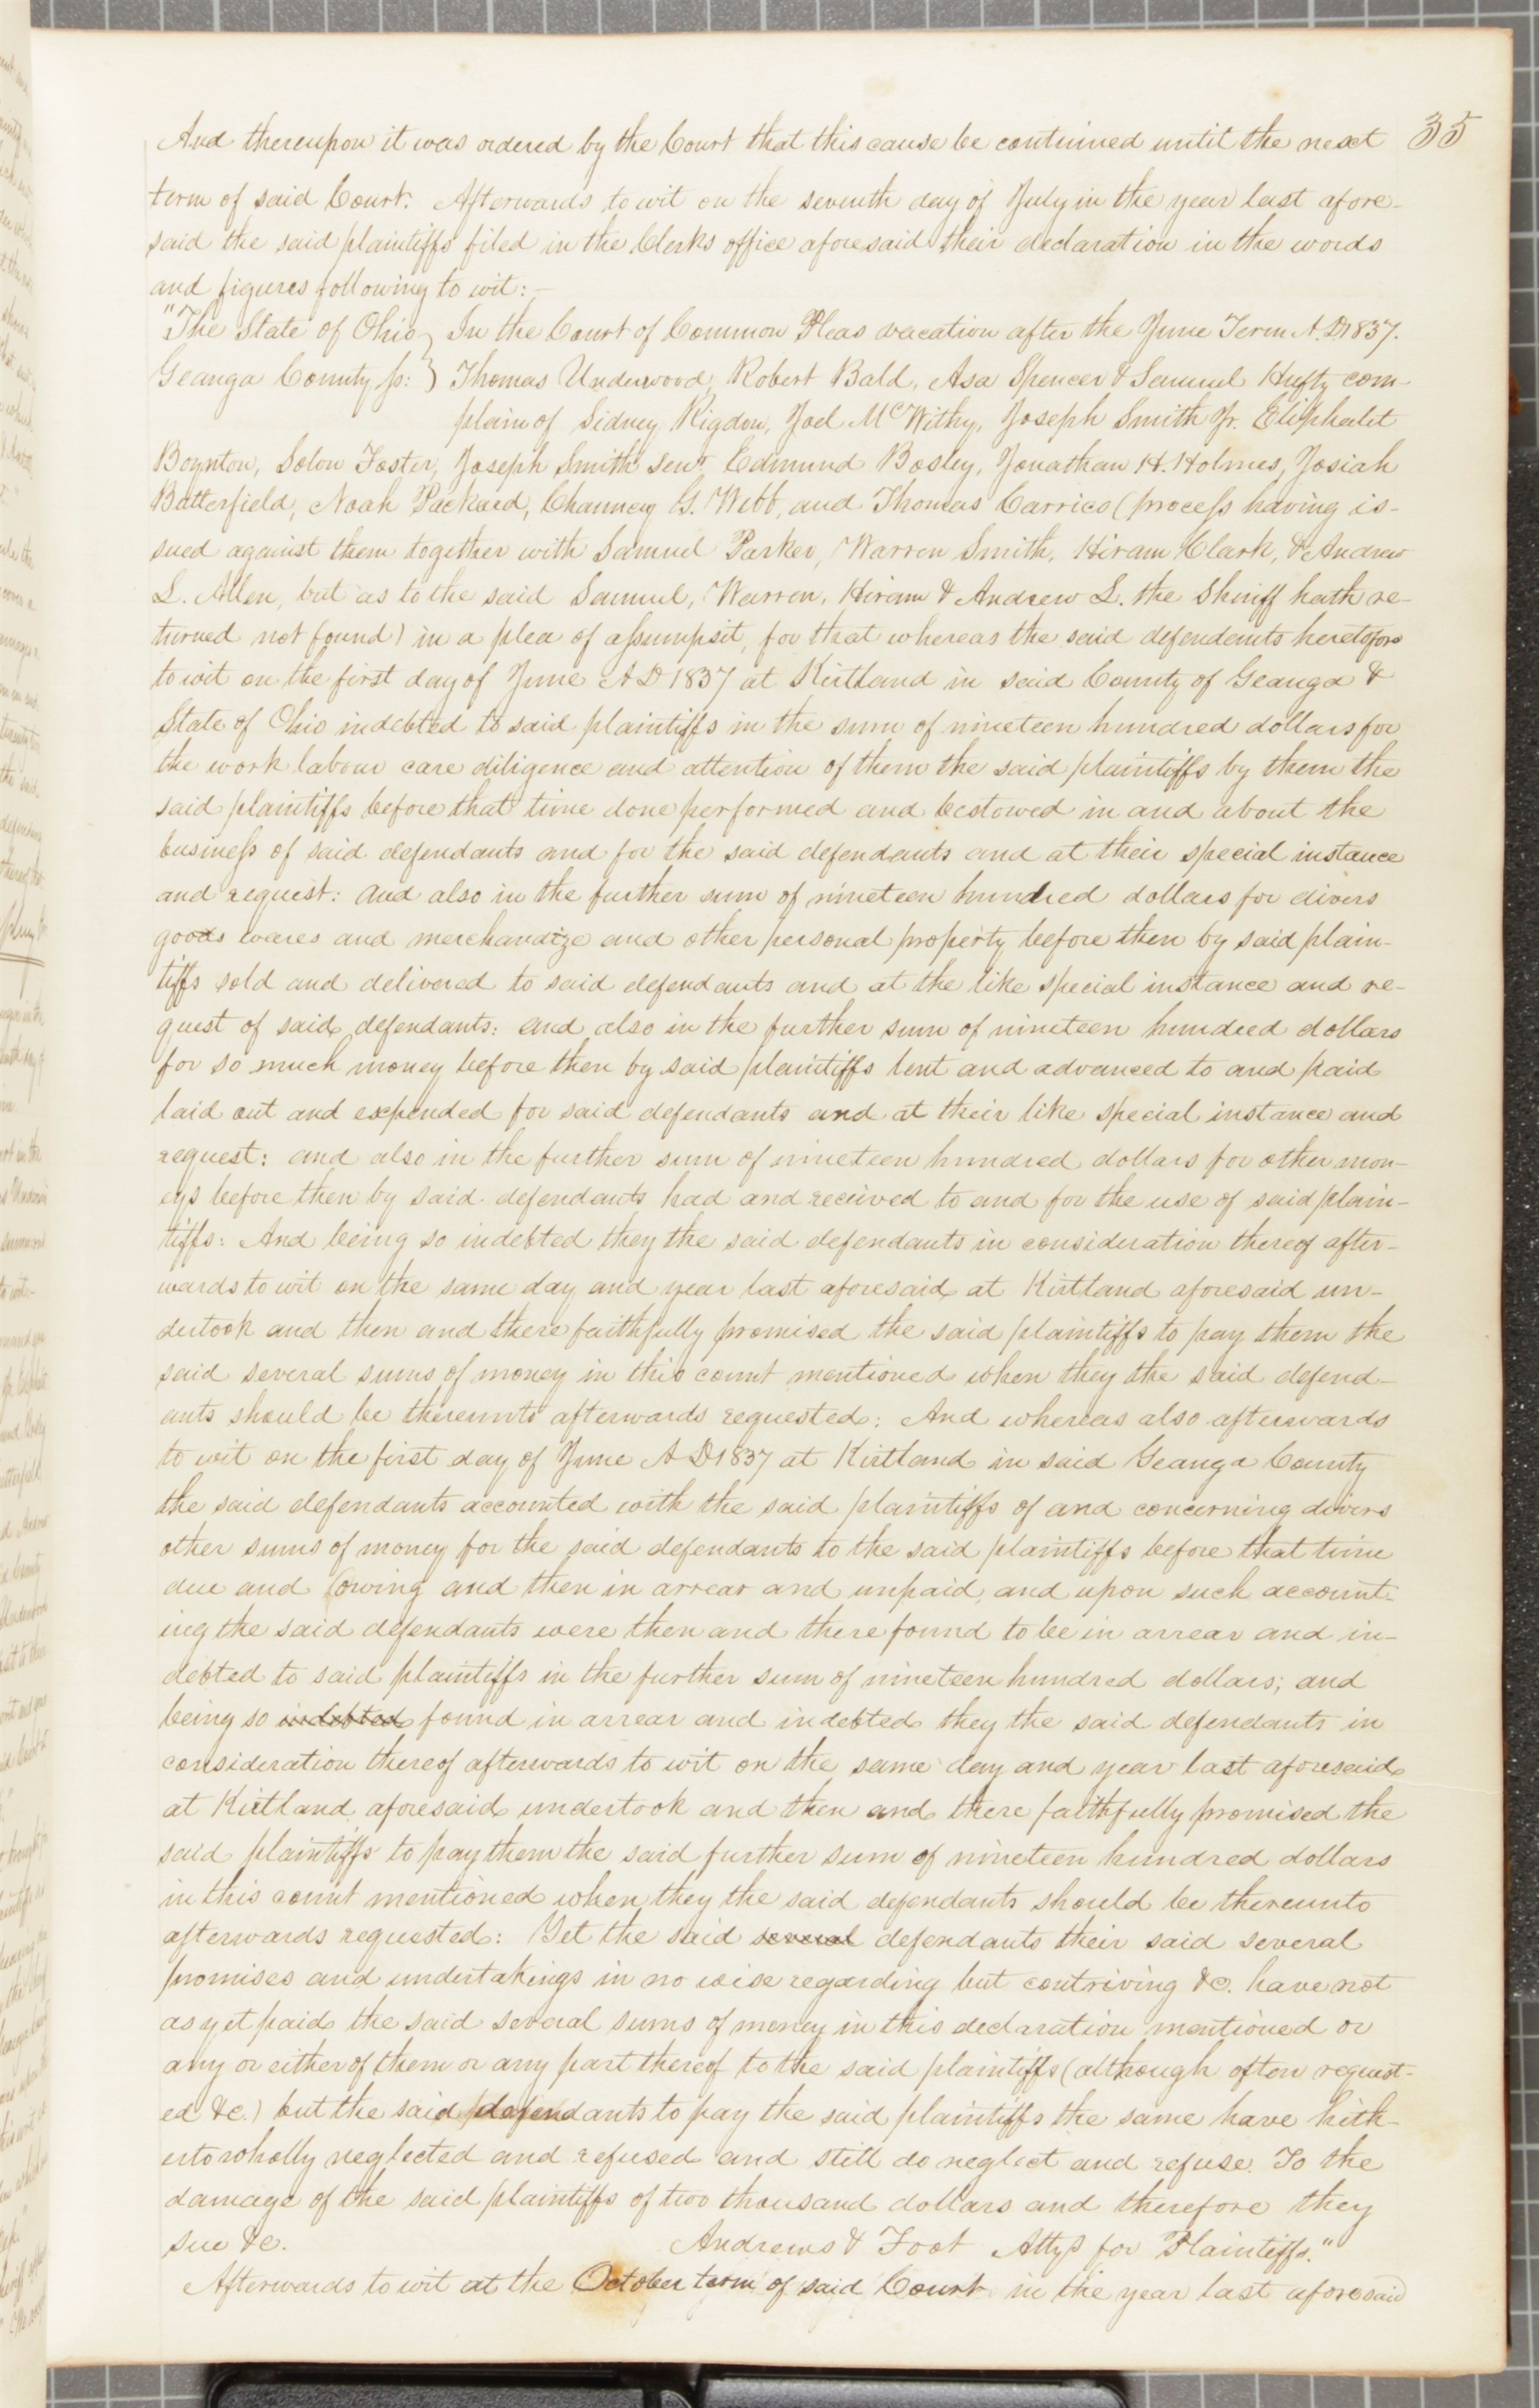 35
And thereupon it was ordered by the Court that this cause be continued until the next
term of said Court. Afterwards to wit on the seventh day of July in the year last afore-
said the said plaintiffs filed in the Clerks office aforesaid their declaration in the words
and figures following to wit:—
"The State of Ohio } In the Court of Common Pleas vacation after the June Term A.D. 1837.
Geauga County ss: } Thomas Underwood, Robert Bald, Asa Spencer & Samuel Hufty com-
plain of Sidney Rigdon, Joel McWithy, Joseph Smith Jr. Eliphalet
Boynton, Solon Foster, Joseph Smith Senr. Edmund Bosley, Jonathan H. Holmes, Josiah
Butterfield, Noah Packard, Chauncy G. Webb, and Thomas Carrico (process having is-
sued against them together with Samuel Parker, Warren Smith, Hiram Clark, & Andrew
L. Allen, but as to the said Samuel, Warren, Hiram & Andrew L. the Sheriff hath re-
turned not found) in a plea of assumpsit, for that whereas the said defendants heretofore
to wit on the first day of June A D 1837 at Kirtland in said County of Geauga &
State of Ohio indebted to said plaintiffs in the sum of nineteen hundred dollars for
the work labour care diligence and attention of them the said plaintiffs by them the
said plaintiffs before that time done performed and bestowed in and about the
business of said defendants and for the said defendants and at their special instance
and request: and also in the further sum of nineteen hundred dollars for divers
goods wares and merchandize and other personal property before then by said plain-
tiffs sold and delivered to said defendants and at the like special instance and re-
quest of said defendants: and also in the further sum of nineteen hundred dollars
for so much money before then by said plaintiffs lent and advanced to and paid
laid out and expended for said defendants and at their like special instance and
request: and also in the further sum of nineteen hundred dollars for other mon-
eys before then by said defendants had and received to and for the use of said plain-
tiffs: And being so indebted they the said defendants in consideration thereof after-
wards to wit on the same day and year last aforesaid at Kirtland aforesaid un-
dertook and then and there faithfully promised the said plaintiffs to pay them the
said several sums of money in this count mentioned when they the said defend-
ants should be thereunto afterwards requested: And whereas also afterwards
to wit on the first day of June A D 1837 at Kirtland in said Geauga County
the said defendants accounted with the said plaintiffs of and concerning divers
other sums of money for the said defendants to the said plaintiffs before that time
due and owing and then in arrear and unpaid, and upon such account-
ing the said defendants were then and there found to be in arrear and in-
debted to said plaintiffs in the further sum of nineteen hundred dollars; and
being so indebted found in arrear and indebted they the said defendants in
consideration thereof afterwards to wit on the same day and year last aforesaid
at Kirtland aforesaid undertook and then and there faithfully promised the
said plaintiffs to pay them the said further sum of nineteen hundred dollars
in this count mentioned when they the said defendants should be thereunto
afterwards requested: Yet the said several defendants their said several
promises and undertakings in no wise regarding but contriving &c. have not
as yet paid the said several sums of money in this declaration mentioned or
any or either of them or any part thereof to the said plaintiffs (although often request-
ed &c.) but the said defendants to pay the said plaintiffs the same have hith-
erto wholly neglected and refused and still do neglect and refuse. To the
damage of the said plaintiffs of two thousand dollars and therefore they
sue &c. Andrews & Foot Attys for Plaintiffs."
Afterwards to wit at the October term of said Court in the year last aforesaid